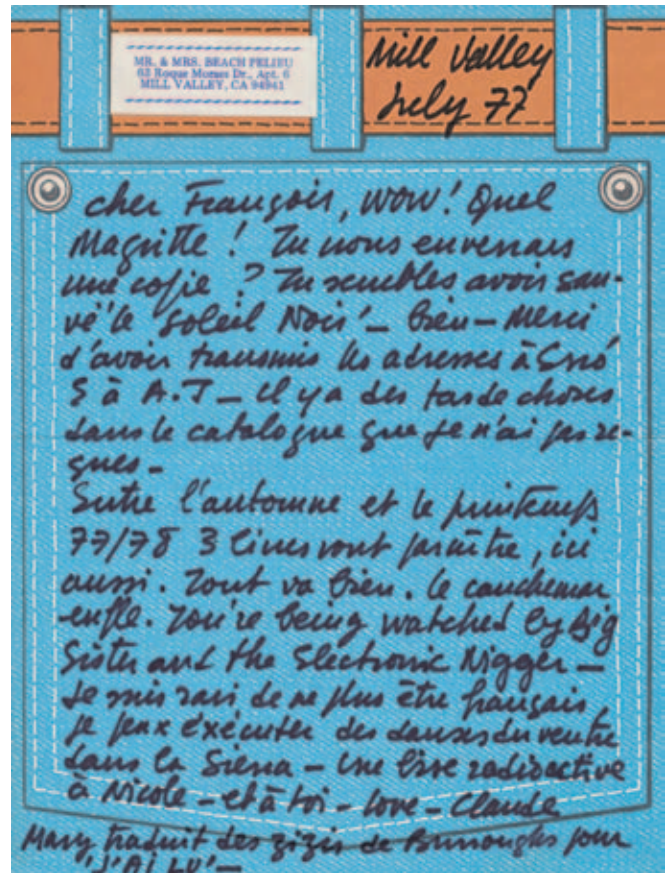 MR. & MRS. BEACH PELIEU
63 Roque Moraes Dr., Apt. 6
MILL VALLEY, CA 94941
Mill Valley
July 77
cher François, wow! Quel
Magritte! Tu nous enverrais
une copie? Tu sembles avoir sau-
vé 'le Soleil Noir' – bien – Merci
d'avoir transmis les adresses à Erró
& à A.J – il y a des tas de choses
dans le catalogue que je n'ai pas re-
çues –
Entre l'automne et le printemps
77/78 3 livres vont paraître, ici
aussi. Tout va bien. Le cauchemar
enfle. You're being watched by Big
Sister and the Electronic Nigger –
Je suis ravi de ne plus être français,
je peux exécuter des danses du ventre
dans la Sierra – une bise radioactive
à Nicole – et à toi – love – Claude
Mary traduit des zizis de Burroughs pour
'J'AI LU' –